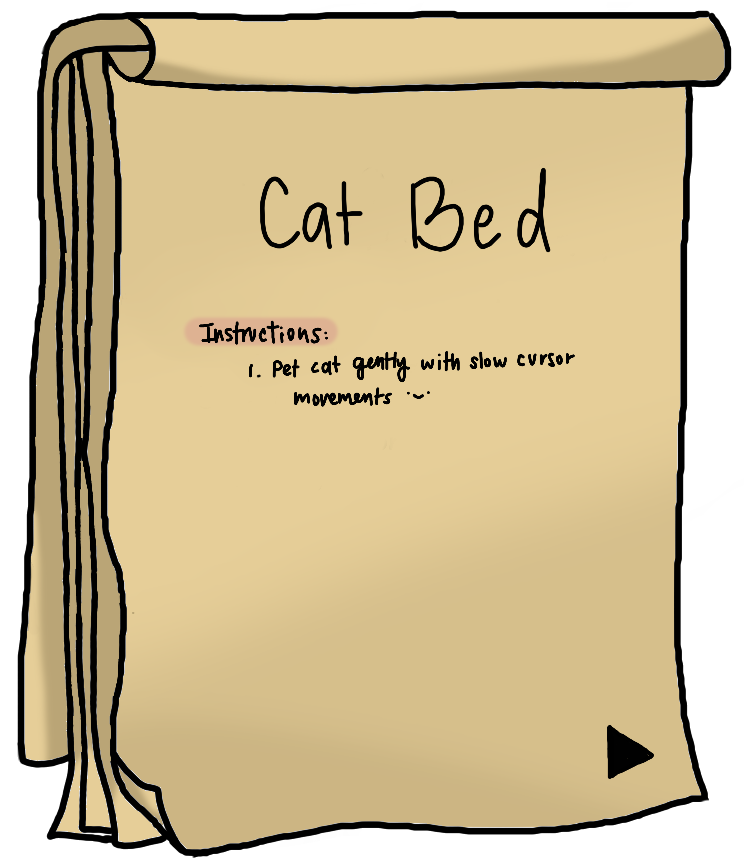 Cat Bed
Instructions:
1. Pet cat gently with slow cursor
movements ·⌣·